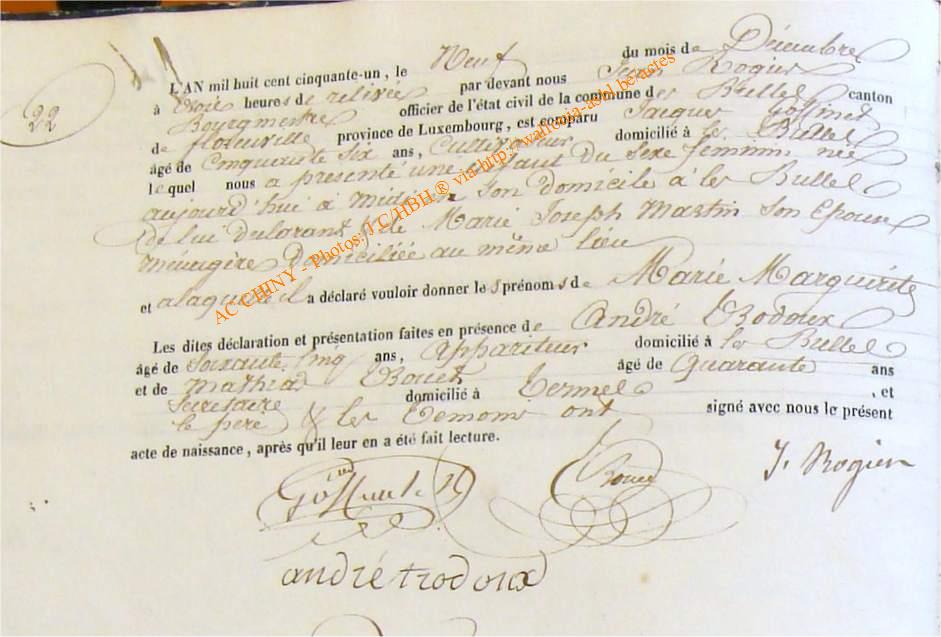 22
L'AN mil huit cent cinquante-un, le Neuf du mois de Décembre
à trois heures de relivée par devant nous Rogier
Bourgmestre officier de l'état civil de la commune des Bulles canton
de florenville province de Luxembourg, est comparu Jacques Goffinet
âgé de Cinquante six ans, Cultivateur domicilié à les Bulles
lequel nous a présenté une enfant du Sexe feminin née
aujourd'hui à midi en Son domicile à les Bulles
de lui déclarant et de Marie Joseph Martin Son Epouse
ménagère domiciliée au même lieu
et a laquelle il a déclaré vouloir donner les prénoms de Marie Marguerite
Les dites déclaration et présentation faites en présence de André Trodoux
âgé de Soixante cinq ans, Appariteur domicilié à les Bulles
et de Mathias âgé de Quarante ans
Secretaire domicilié à Termes, et
le père & les Temoins ont signé avec nous le présent
acte de naissance, après qu'il leur en a été fait lecture.
J. Rogier
Goffinet
andré trodoux
AC CHINY - Photos: J C/HBH ® via-http://wallonia-asbl.be/actes